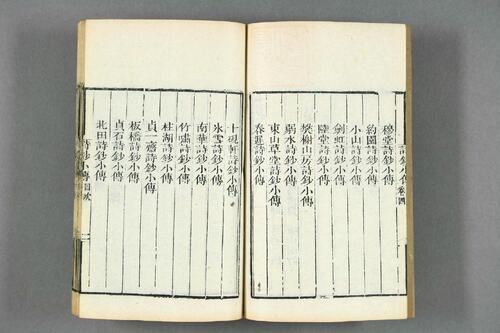 詩鈔小傳 卷四
穆堂詩鈔小傳
約園詩鈔小傳
小山詩鈔小傳
劍虹詩鈔小傳
陸堂詩鈔小傳
樊榭山房詩鈔小傳
弱水詩鈔小傳
東山草堂詩鈔小傳
春遲詩鈔小傳
十硯軒詩鈔小傳
冰雪詩鈔小傳
南華詩鈔小傳
竹嘯詩鈔小傳
柱湖詩鈔小傳
貞一齋詩鈔小傳
板橋詩鈔小傳
貞石詩鈔小傳
北田詩鈔小傳
詩鈔小傳目次